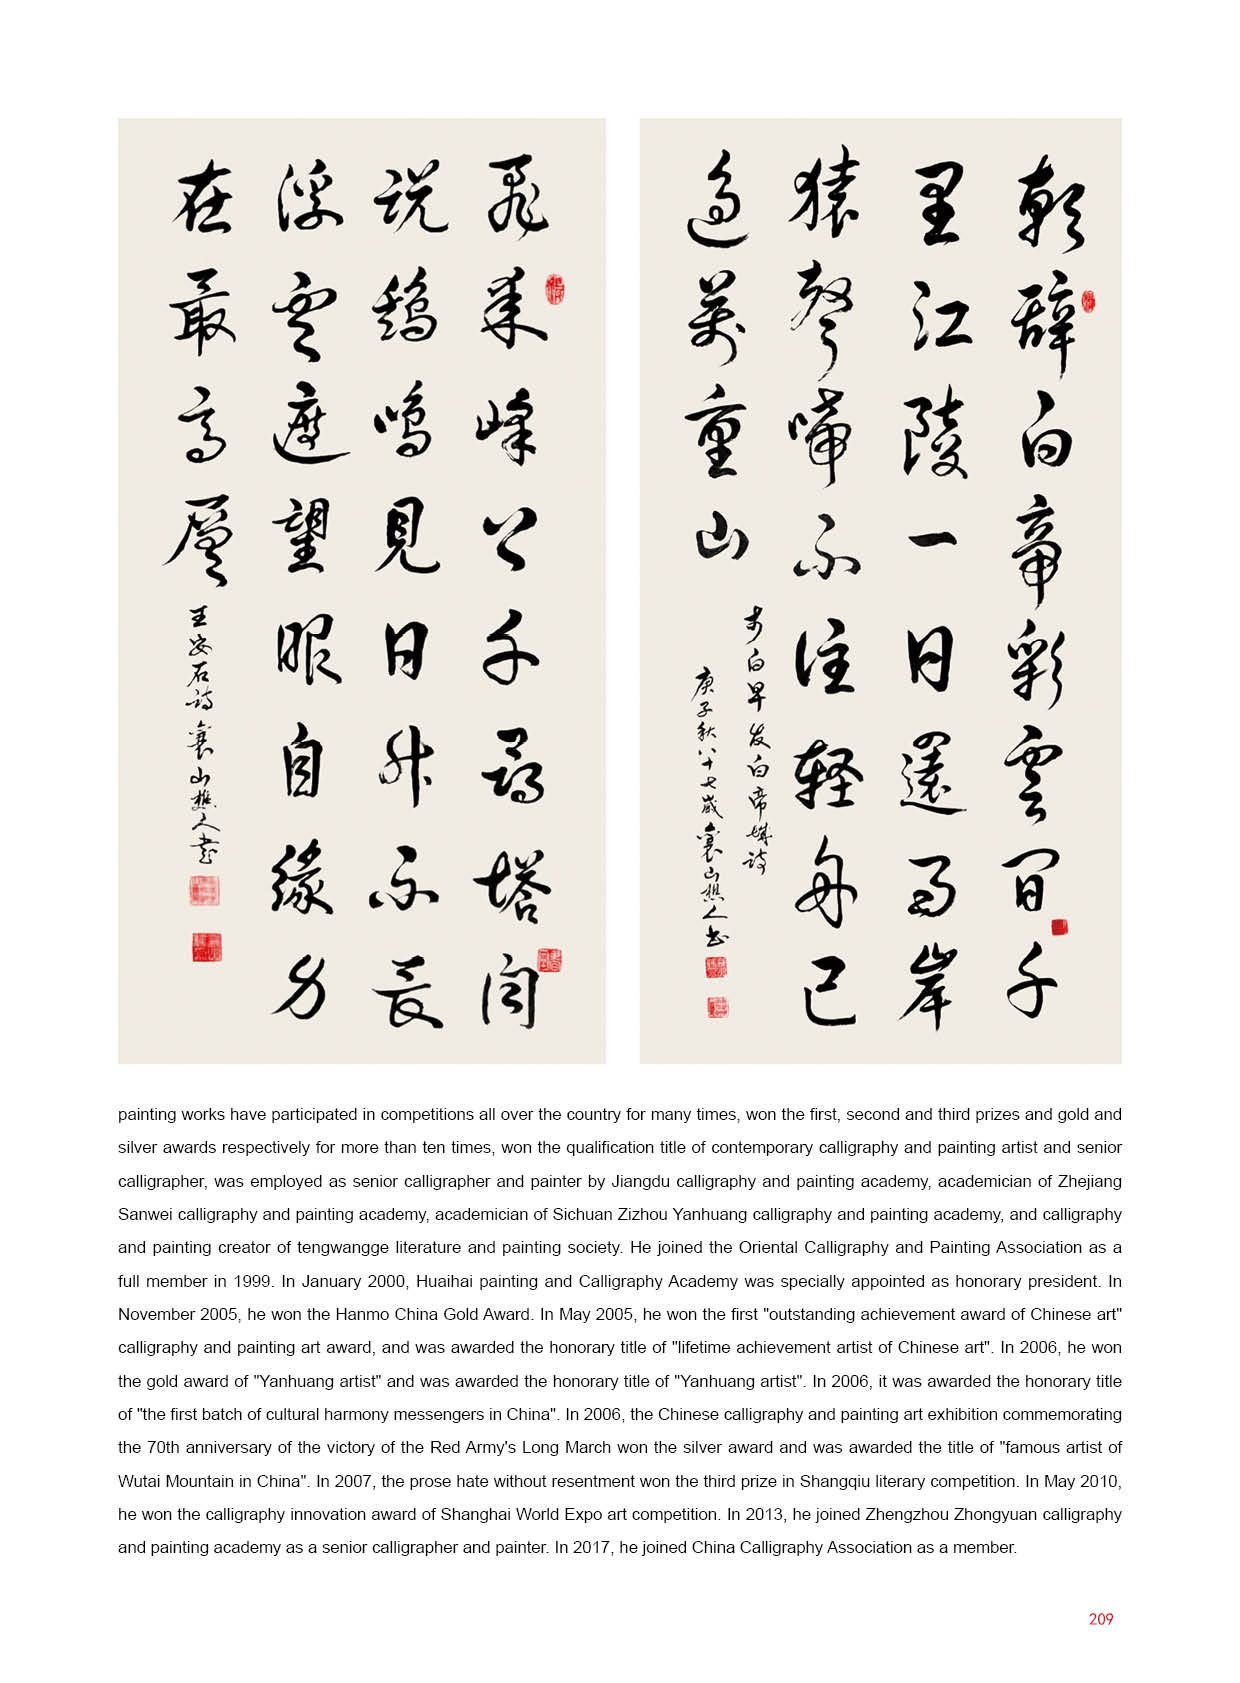 飛来峰上千尋塔闻
说鷄鳴見日升不畏
浮雲遮望眼自緣身
在最高層
王安石诗襄山樵人書
朝辞白帝彩雲间千
里江陵一日還两岸
猿聲啼不住轻舟已
過萬重山
李白早发白帝城诗
庚子秋八十七歲襄山樵人书
painting works have participated in competitions all over the country for many times, won the first, second and third prizes and gold and
silver awards respectively for more than ten times, won the qualification title of contemporary calligraphy and painting artist and senior
calligrapher, was employed as senior calligrapher and painter by Jiangdu calligraphy and painting academy, academician of Zhejiang
Sanwei calligraphy and painting academy, academician of Sichuan Zizhou Yanhuang calligraphy and painting academy, and calligraphy
and painting creator of tengwangge literature and painting society. He joined the Oriental Calligraphy and Painting Association as a
full member in 1999. In January 2000, Huaihai painting and Calligraphy Academy was specially appointed as honorary president. In
November 2005, he won the Hanmo China Gold Award. In May 2005, he won the first "outstanding achievement award of Chinese art"
calligraphy and painting art award, and was awarded the honorary title of "lifetime achievement artist of Chinese art". In 2006, he won
the gold award of "Yanhuang artist" and was awarded the honorary title of "Yanhuang artist". In 2006, it was awarded the honorary title
of "the first batch of cultural harmony messengers in China". In 2006, the Chinese calligraphy and painting art exhibition commemorating
the 70th anniversary of the victory of the Red Army's Long March won the silver award and was awarded the title of "famous artist of
Wutai Mountain in China". In 2007, the prose hate without resentment won the third prize in Shangqiu literary competition. In May 2010,
he won the calligraphy innovation award of Shanghai World Expo art competition. In 2013, he joined Zhengzhou Zhongyuan calligraphy
and painting academy as a senior calligrapher and painter. In 2017, he joined China Calligraphy Association as a member.
209